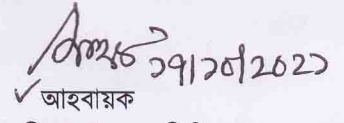 ১৭/১০/২০২১
আহবায়ক